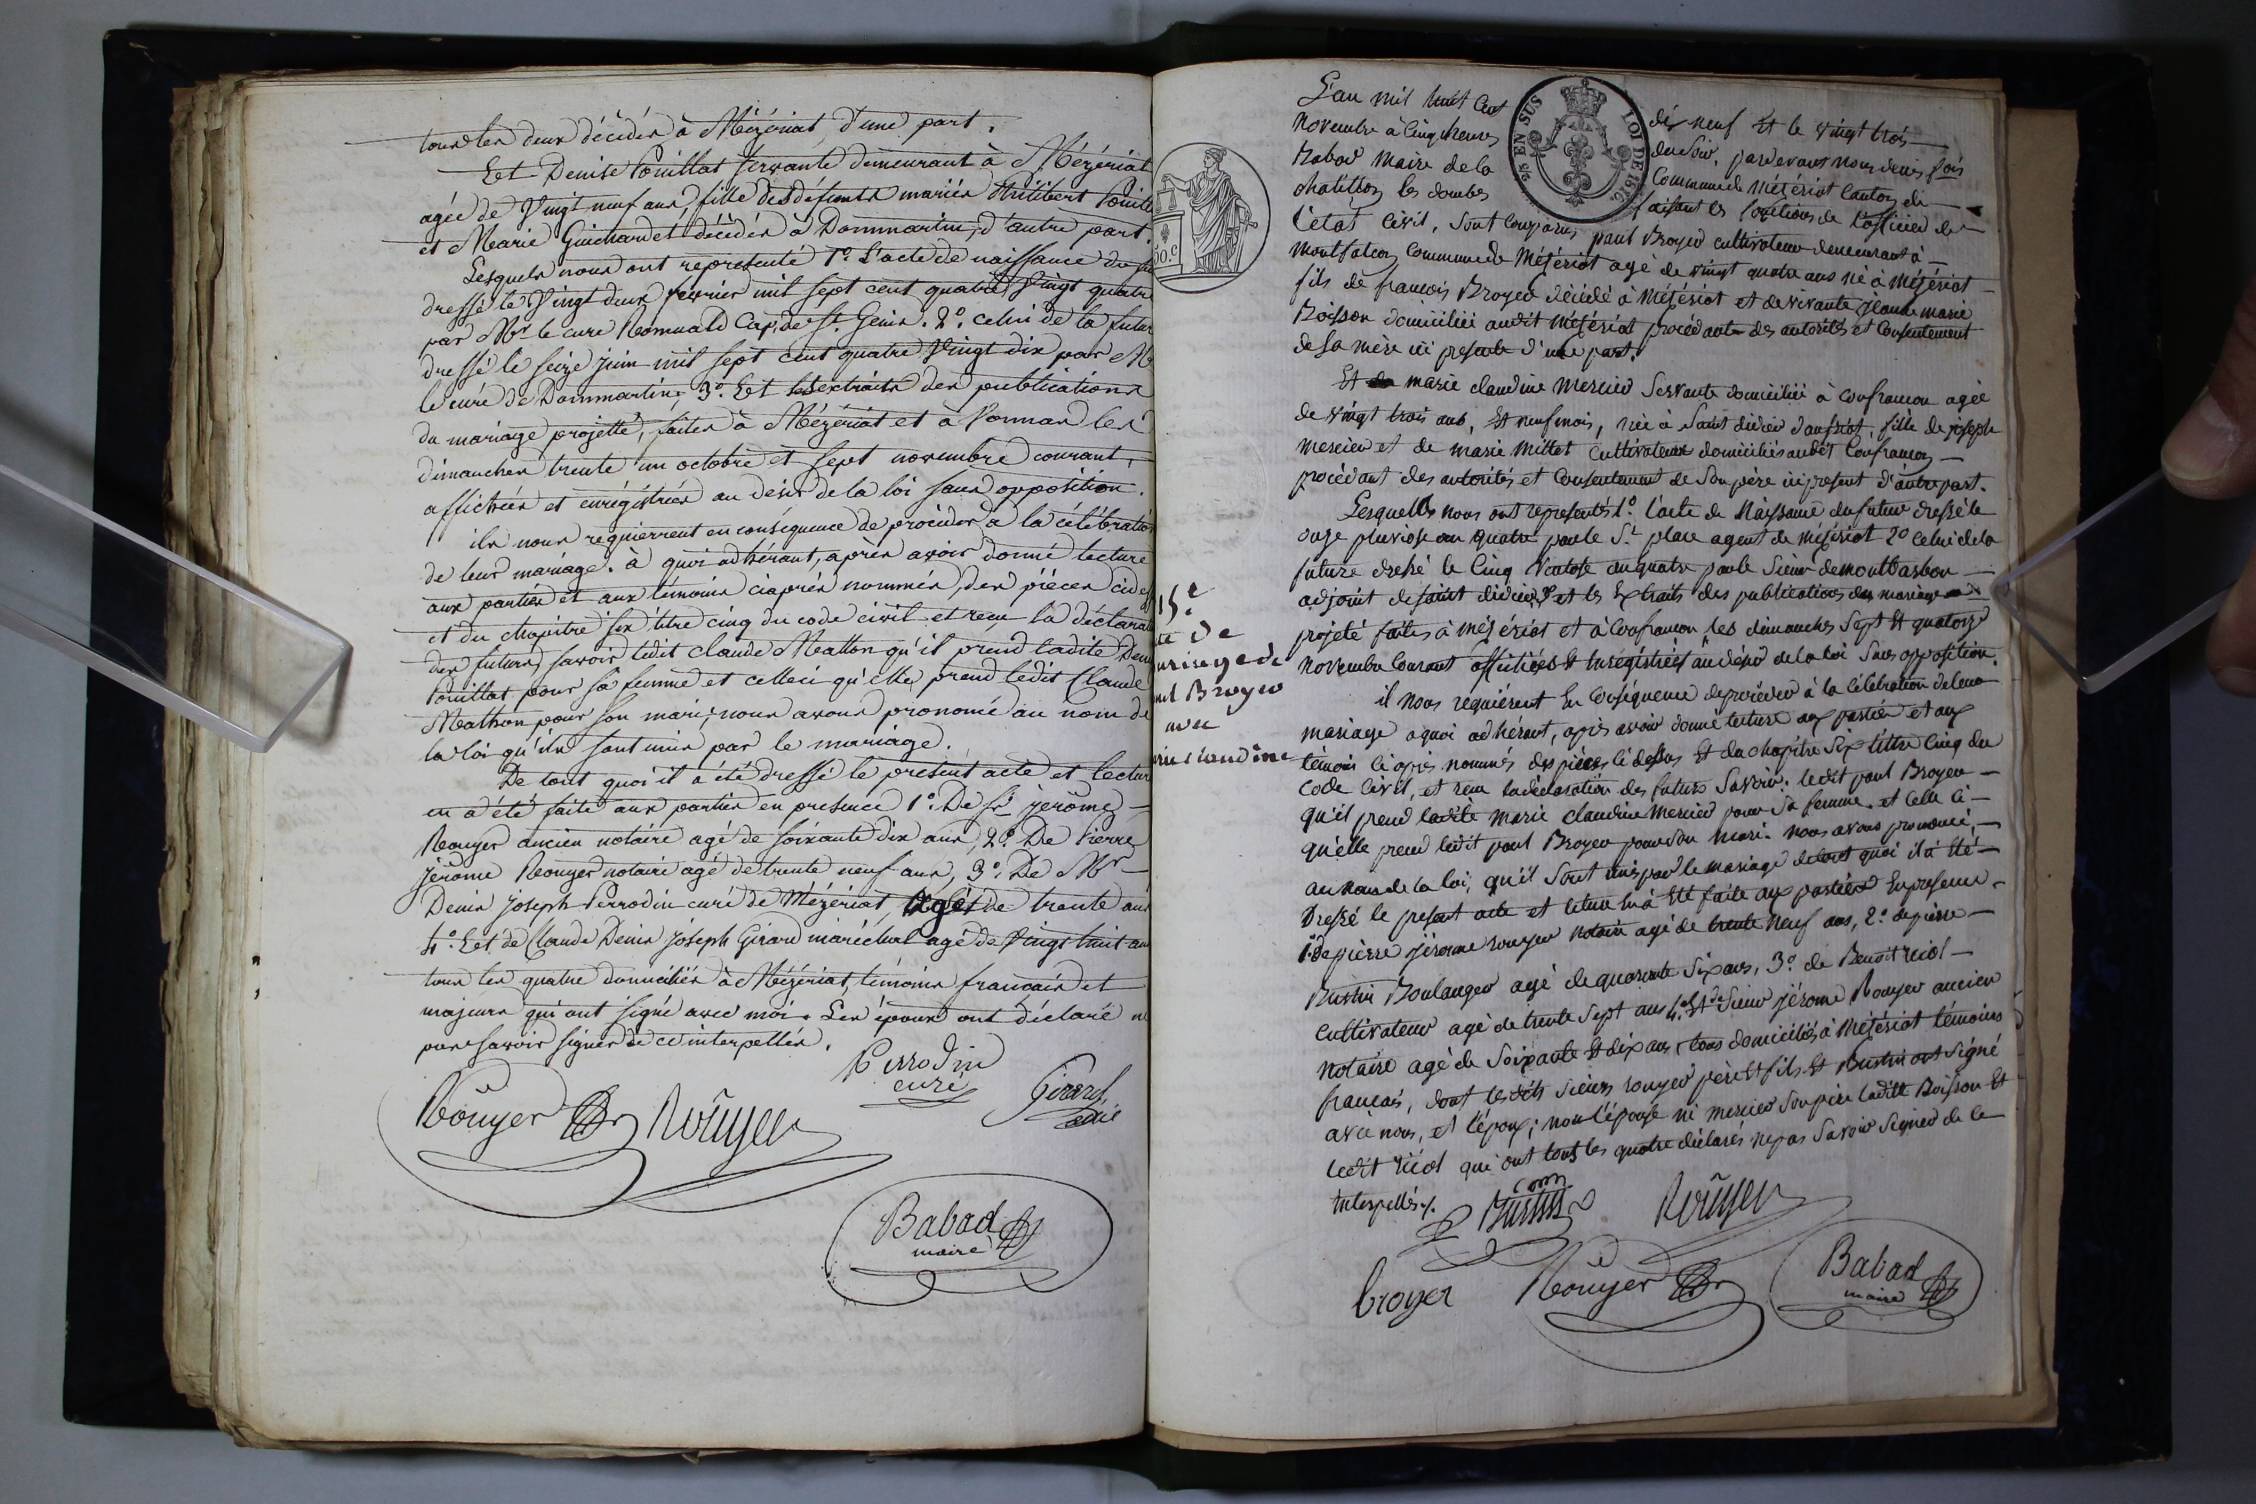 tous les deux décédés à Mézériat, d'une part.
Et Denise Pouillat servante demeurant à Mézériat
agée de vingt neuf ans, fille des défunts mariés Philibert Pouill
et Marie Guichardet décédés à Dommartin, d'autre part.
Lesquels nous ont representé 1° L'acte de naissance du fu
dressé le vingt deux fevrier mil sept cent quatre vingt quatre
par Mr le curé Romuald Cap. de St Genis. 2°. celui de la futur
dressé le seize juin mil sept cent quatre vingt dix par M
le curé de Dommartin. 3°. Et les extraits des publications
du mariage projetté, faites à Mézériat et à Vonnas les
dimanches trente un octobre et sept novembre courant,
affichées et enrégistrées au désir de la loi sans opposition.
ils nous requierrent en conséquence de procéder à la célébration
de leur mariage. à quoi adhérant, après avoir donné lecture
aux parties et aux témoins ciaprés nommés, des piéces cides
et du chapitre six titre cinq du code civil et recu la déclarat
des futurs, savoir ledit claude Mathon qu'il prend ladite Denis
Pouillat pour sa femme et celleci qu'elle prend ledit Claude
Mathon pour son mari; nous avons prononcé au nom de
la loi qu'ils sont unis par le mariage.
De tout quoi il a été dressé le présent acte et lectur
en a été faite aux parties en presence 1°. De Sr. jerôme
Rouyer ancien notaire agé de soixante dix ans, 2°. De Pierre
jérôme Rouyer notaire agé de trente neuf ans, 3°. De Mr
Denis joseph Perrodin curé de Mézériat, agé de trente ans
4°. Et de Claude Denis joseph Girard maréchal agé de vingt huit an
tous les quatre domiciliés à Mézériat, témoins français et
majeurs qui ont signé avec moi. Les époux ont déclaré n
pas savoir signer de ce interpellés.
Perrodin
curé
Girard
Rouyer Rouyer
Babad
maire
L'an mil huit cent dix neuf et le vingt trois
novembre à cinq heures du soir, pardevant nous denis fois
Babad maire de la commune de Mézériat canton de
chatillon les dombes faisant les fonctions de l'officier de
l'état civil, sont comparus paul Broyer cultivateur demeurant à
montfalcon commune de Mézériat agé de vingt quatre ans né à Mézériat
fils de francois Broyer décédé à Mézériat et de vivante jeanne marie
Boisson domiciliée audit Mézériat procédant des autorités et consentement
de sa mère ici presente d'une part.
Et marie claudine mercier servante domiciliée à confrancon agée
de vingt trois ans, et neuf mois, née à saint didier d'aussiat, fille de joseph
mercier et de marie millet cultivateurs domiciliés audit confrancon
procédant des autorités et consentement de son père ici present d'autre part.
Lesquels nous ont representés 1°. l'acte de Naissance du futur dressé le
onze pluviose an quatre par le St place agent de mézériat 2° celui de la
future dressé le cinq ventose an quatre par le sieur demontbarbon
adjoint de saint didier, 3° et les extraits des publications du mariage
projeté faites à mézériat et à confrancon les dimanches sept et quatorze
novembre courant affichées et enregistrées au désir de la loi sans opposition.
il nous requièrent en conséquence de procéder à la célébration de leur
mariage a quoi adhérant, après avoir donné lecture aux parties et aux
témoins ci après nommés des pièces ci dessus et du chapitre six tittre cinq du
code civil, et recu la déclaration des futurs savoir: ledit paul Broyer
qu'il prend ladite marie claudine mercier pour sa femme. et celle ci
qu'elle prend ledit paul Broyer pour son mari. nous avons prononcé,
au nom de la loi, qu'il sont unis par le mariage de tout quoi il a été
dressé le present acte et lecture en a été faite aux parties en presence
1° de pierre jérome rouyer notaire agé de trente neuf ans, 2°. de pierre
Bustin Boulanger agé de quarante six ans, 3°. de Benoit riol
cultivateur agé de trente sept ans 4°. et de sieur jérome Rouyer ancien
notaire agé de soixante et dix ans, tous domiciliés à Mézériat témoins
francais, dont lesdits sieurs rouyer père et fils et Bustin ont signé
avec nous, et l'époux; non l'épouse ni mercier son père ladite Boisson et
ledit riol qui ont tous les quatre déclarés ne pas savoir signer de ce
interpellés.
15e
te de
ariage de
ul Broyer
avec
rie claudine
Bustin Rouyer
broyer Rouyer Babad
maire
2/3 EN SUS LOI DE 1816
50.c